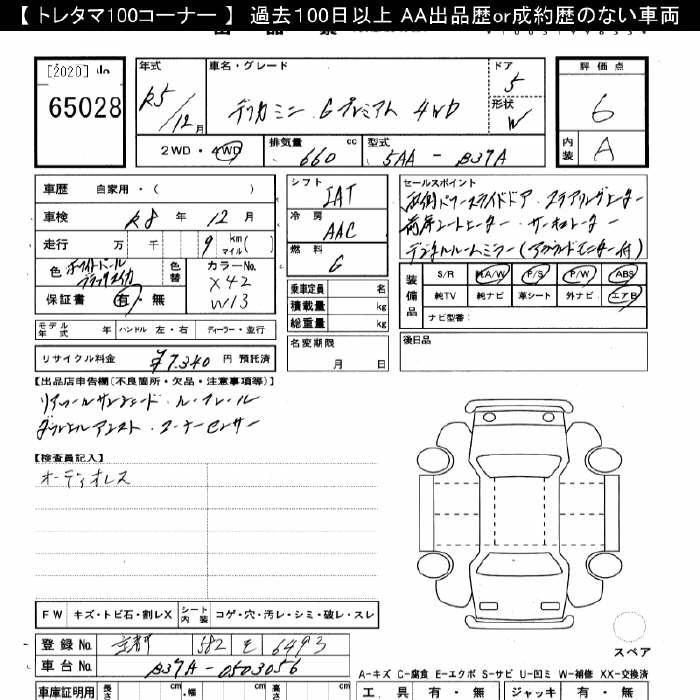 【 トレタマ100コーナー 】 過去100日以上 AA出品歴or成約歴のない車両
[2020]
65028
年式
R5/12月
車名・グレード
デリカミニ Gプレミアム 4WD
ドア
5
形状
W
評価点
6
内装
A
2WD・4WD
排気量
660 cc
型式
5AA - B37A
車歴 自家用・( )
車検 R8 年 12 月
走行 万 千 9 km(マイル)
色
ホワイトパール
色替
カラーNo.
X42
W13
保証書 有・無
シフト
IAT
冷房
AAC
燃料
G
乗車定員 名
積載量 kg
総重量 kg
名変期限
月 日
セールスポイント
両側パワースライドドア・ステアリングヒーター
前席シートヒーター・サーキュレーター
デジタルルームミラー(アラウンドモニター付)
装備品
S/R A/W P/S P/W ABS
純TV 純ナビ 革シート 外ナビ エアB
ナビ型番:
後日品
モデル年式 年 ハンドル 左・右 ディーラー・並行
リサイクル料金 ¥7,340 円 預託済
【出品店申告欄(不良箇所・欠品・注意事項等)】
リアロールサンシェード・ルーフレール
コーナーセンサー
【検査員記入】
オーディオレス
FW キズ・トビ石・割レX シート内装 コゲ・穴・汚レ・シミ・破レ・スレ
登録No. 京都 582 モ 6493
車台No. B37A-0503056
スペア
A-キズ C-腐食 E-エクボ S-サビ U-凹ミ W-補修 XX-交換済
車庫証明用 長さ cm 幅 cm 高さ cm
工具 有・無 ジャッキ 有・無